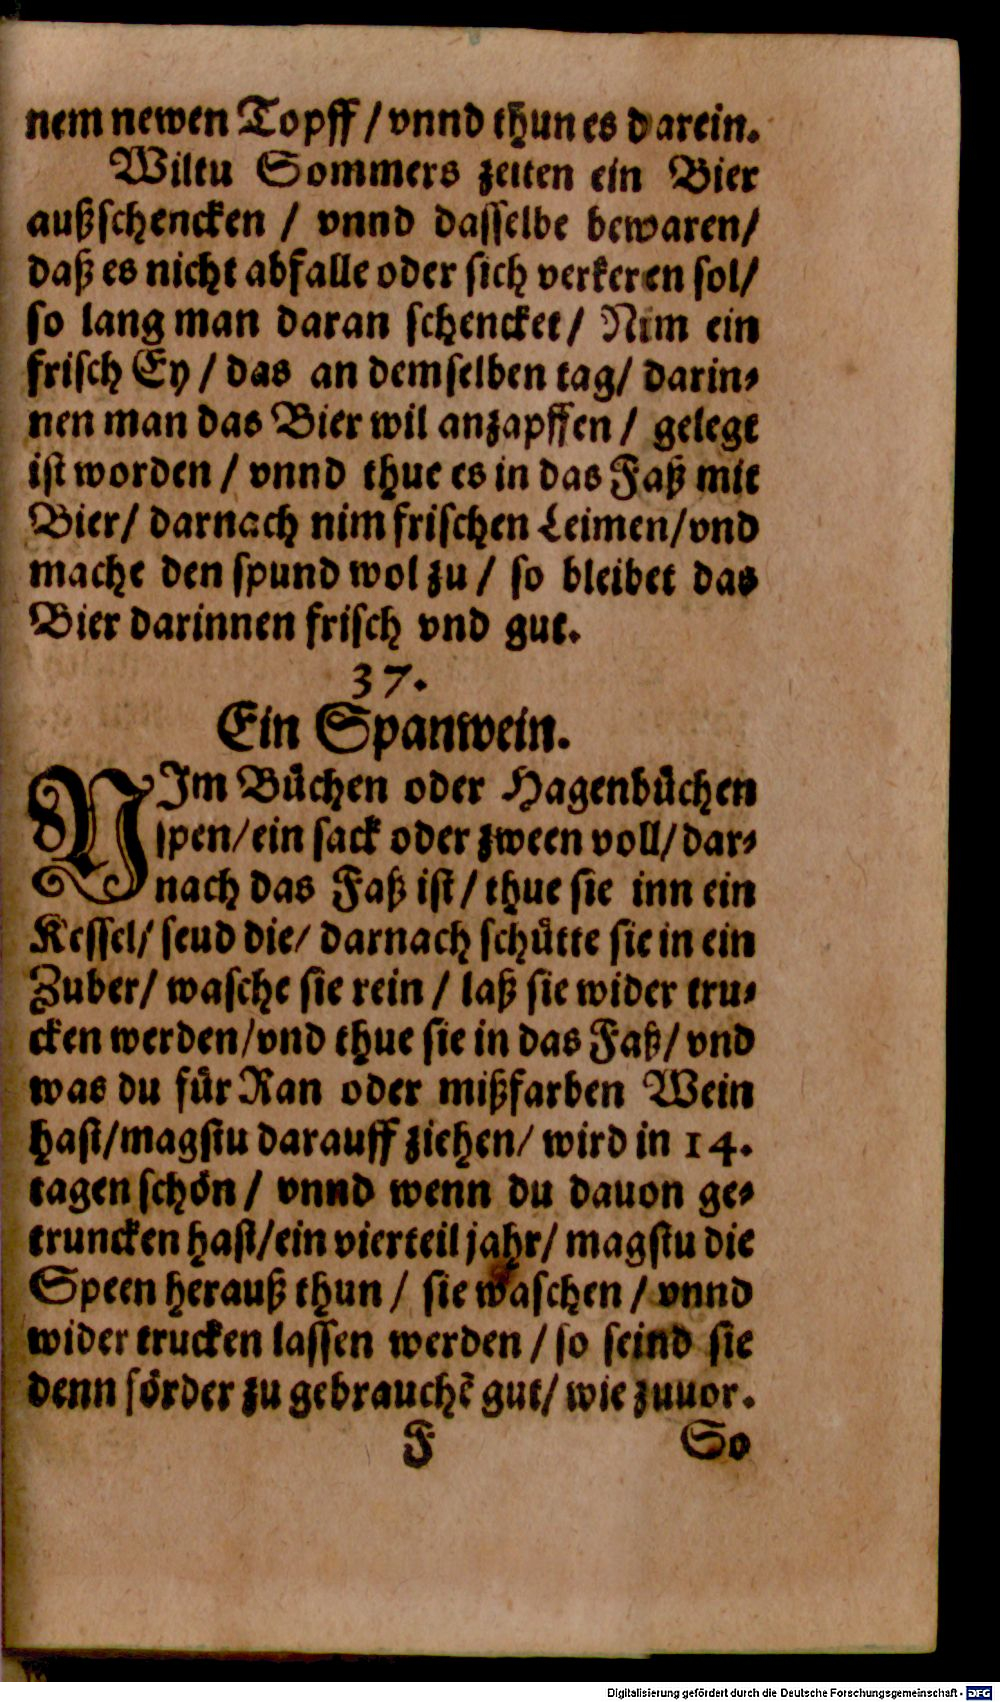 nem newen Topff / vnnd thun es darein.
Wiltu Sommers zeiten ein Bier
außschencken / vnnd dasselbe bewaren/
daß es nicht abfalle oder sich verkeren sol/
so lang man daran schencket/ Nim ein
frisch Ey / das an demselben tag/ darin-
nen man das Bier wil anzapffen / gelegt
ist worden / vnnd thue es in das Faß mit
Bier/ darnach nim frischen Leimen/vnd
mache den spund wol zu / so bleibet das
Bier darinnen frisch vnd gut.
37.
Ein Spanwein.
NIm Bůchen oder Hagenbůchen
spen/ein sack oder zween voll/ dar-
nach das Faß ist / thue sie inn ein
Kessel/ seud die/ darnach schůtte sie in ein
Zuber/ wasche sie rein / laß sie wider tru-
cken werden/vnd thue sie in das Faß/ vnd
was du fůr Ran oder mißfarben Wein
hast/magstu darauff ziehen/ wird in 14.
tagen schön / vnnd wenn du dauon ge-
truncken hast/ein vierteil jahr/ magstu die
Speen herauß thun / sie waschen / vnnd
wider trucken lassen werden / so seind sie
denn förder zu gebrauchẽ gut/ wie zuuor.
F So
Digitalisierung gefördert durch die Deutsche Forschungsgemeinschaft - DFG